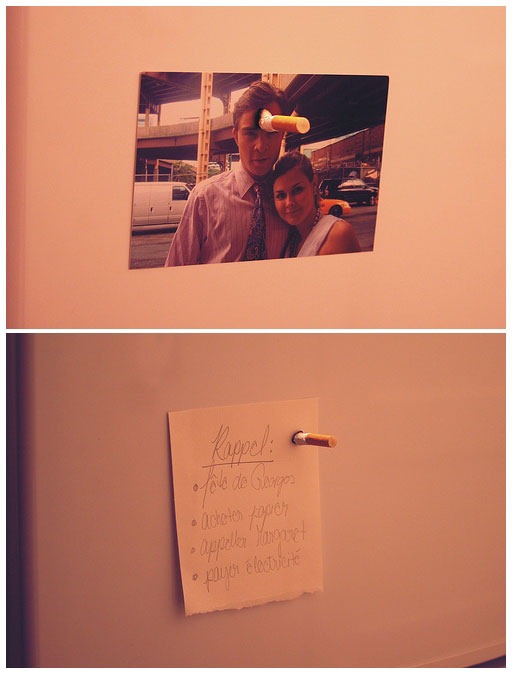 Rappel:
• fête de Georges
• acheter papier
• appeller Margaret
• payer électricité